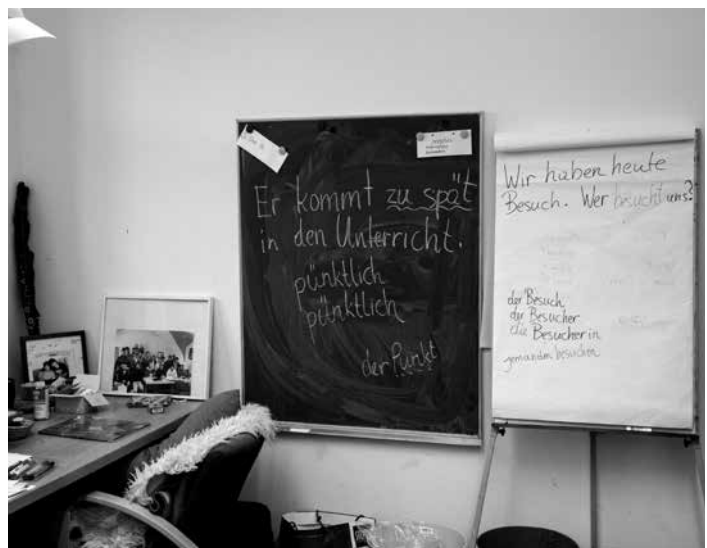 Er kommt zu spät
in den Unterricht.
pünktlich
pünktlich
der Punkt
Wir haben heute
Besuch. Wer besucht uns?
der Besuch
der Besucher
die Besucherin
jemanden besuchen